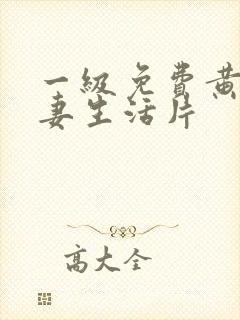 一级免费黄
妻生活片
高大全